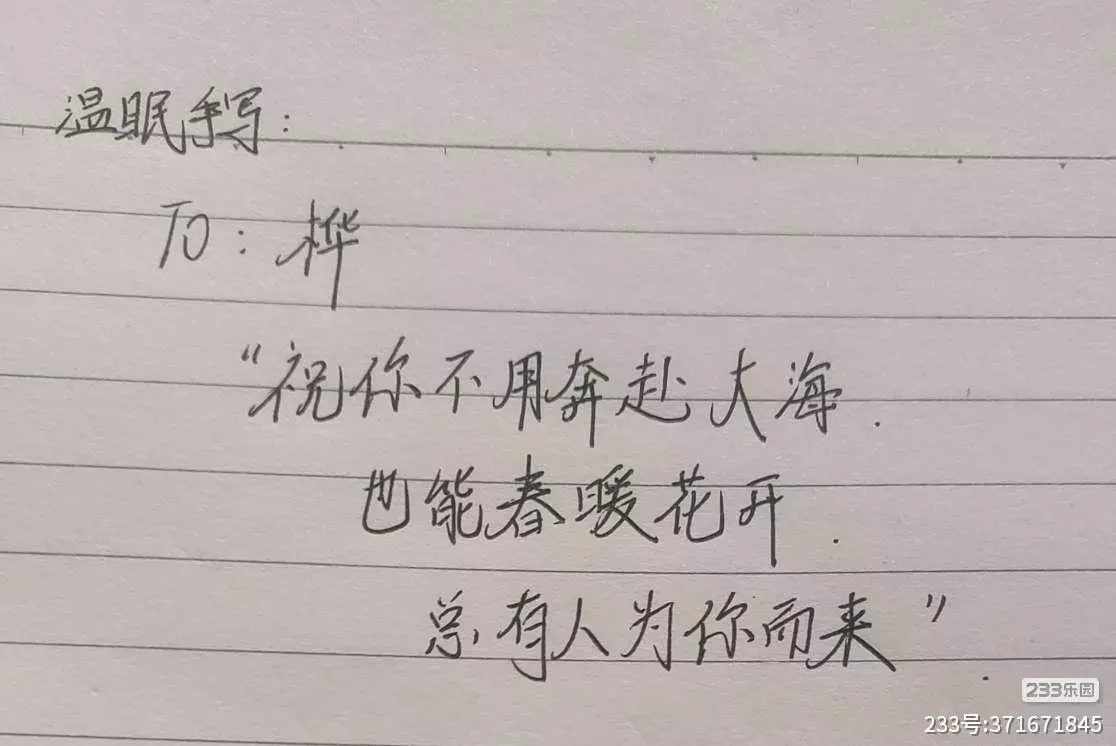 温眠手写:
TO: 桦
“祝你不用奔赴大海.
也能春暖花开.
总有人为你而来”.
233乐园
233号:371671845